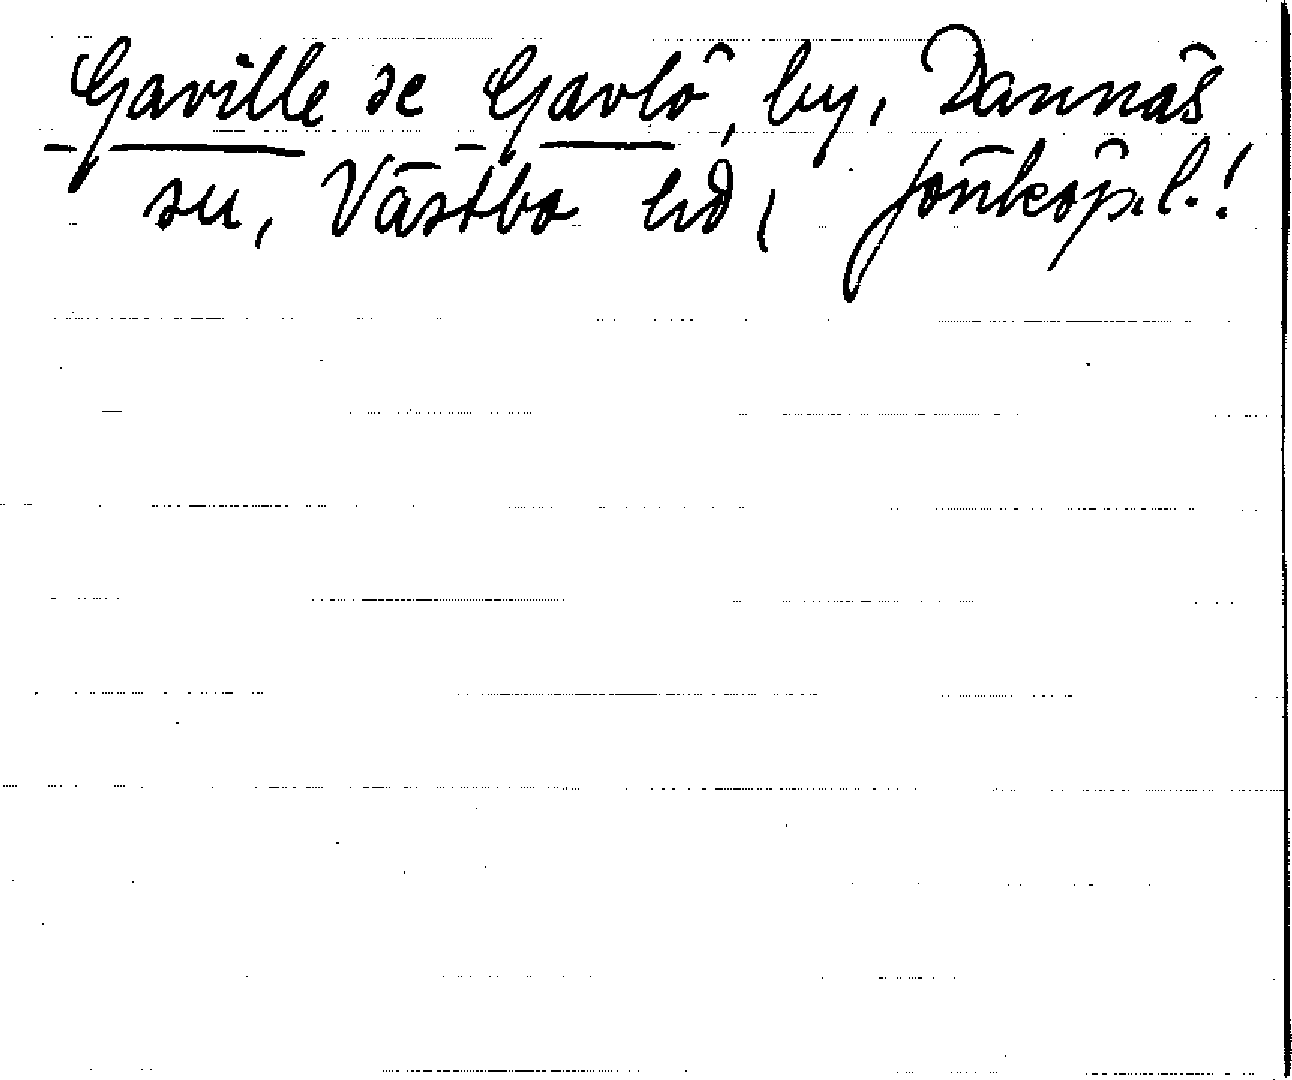 Gaville se Gavlö, by, Dannäs
sn, Västbo hd, Jönköp. l.!